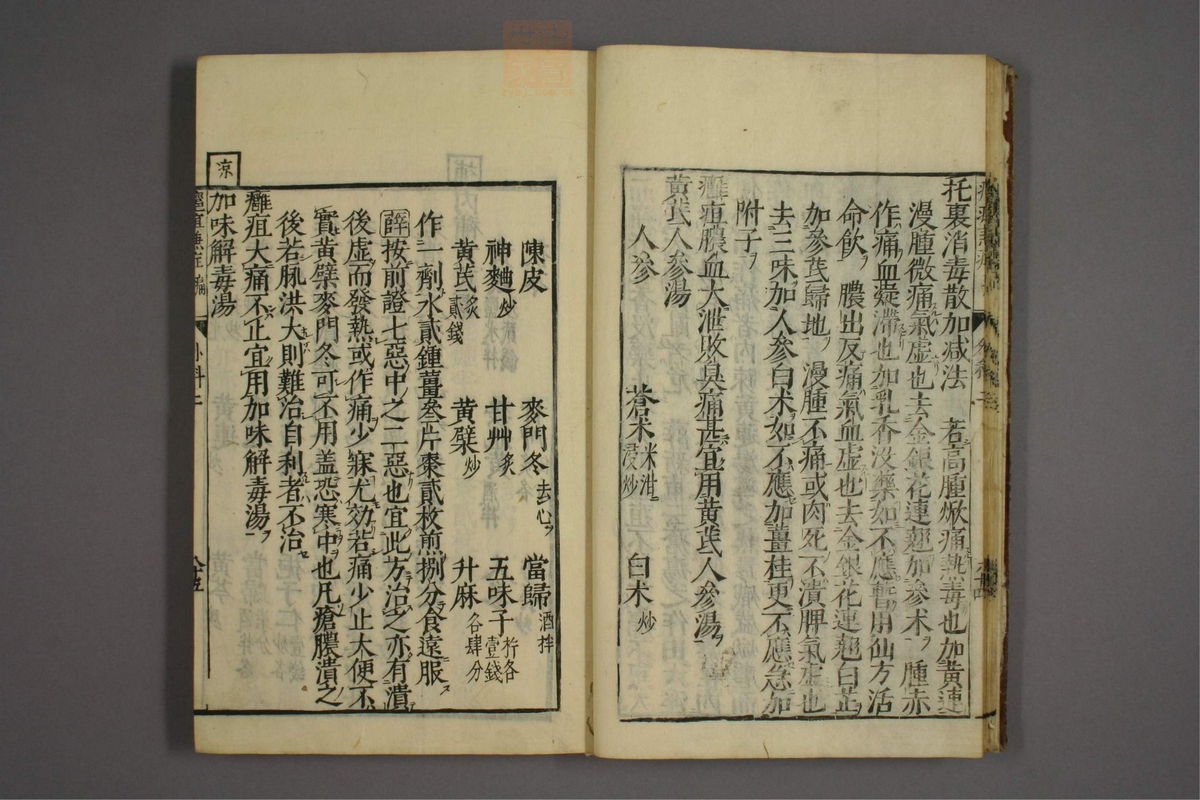 托裏消毒散加减法　若高腫焮痛熱毒也加黄連
漫腫微痛氣虚也去金銀花連翹加參朮　腫赤
作痛血凝滯也加乳香没藥如不應暫用仙方活
命飲　膿出反痛氣血虚也去金銀花連翹白芷
加參芪歸地　漫腫不痛或肉死不潰脾氣虚也
去三味加人參白朮如不應加薑桂更不應急加
附子
癰疽膿血大泄敗臭痛甚宜用黄芪人參湯
黄芪人參湯
人參　蒼朮米泔浸炒　白朮炒
陳皮　麥門冬去心　當歸酒拌
神麯炒　甘艸炙　五味子杵各壹錢
黄芪炙貳錢　黄蘗炒　升麻各肆分
作一劑水貳鍾薑叁片棗貳枚煎捌分食遠服
薛按前證七惡中之二惡也宜此方治之亦有潰
後虚而發熱或作痛少寐尤効若痛少止大便不
實黄蘗麥門冬可不用盖恐寒中也凡瘡膿潰之
後若脉洪大則難治自利者不治
癰疽大痛不止宜用加味解毒湯
涼
加味解毒湯